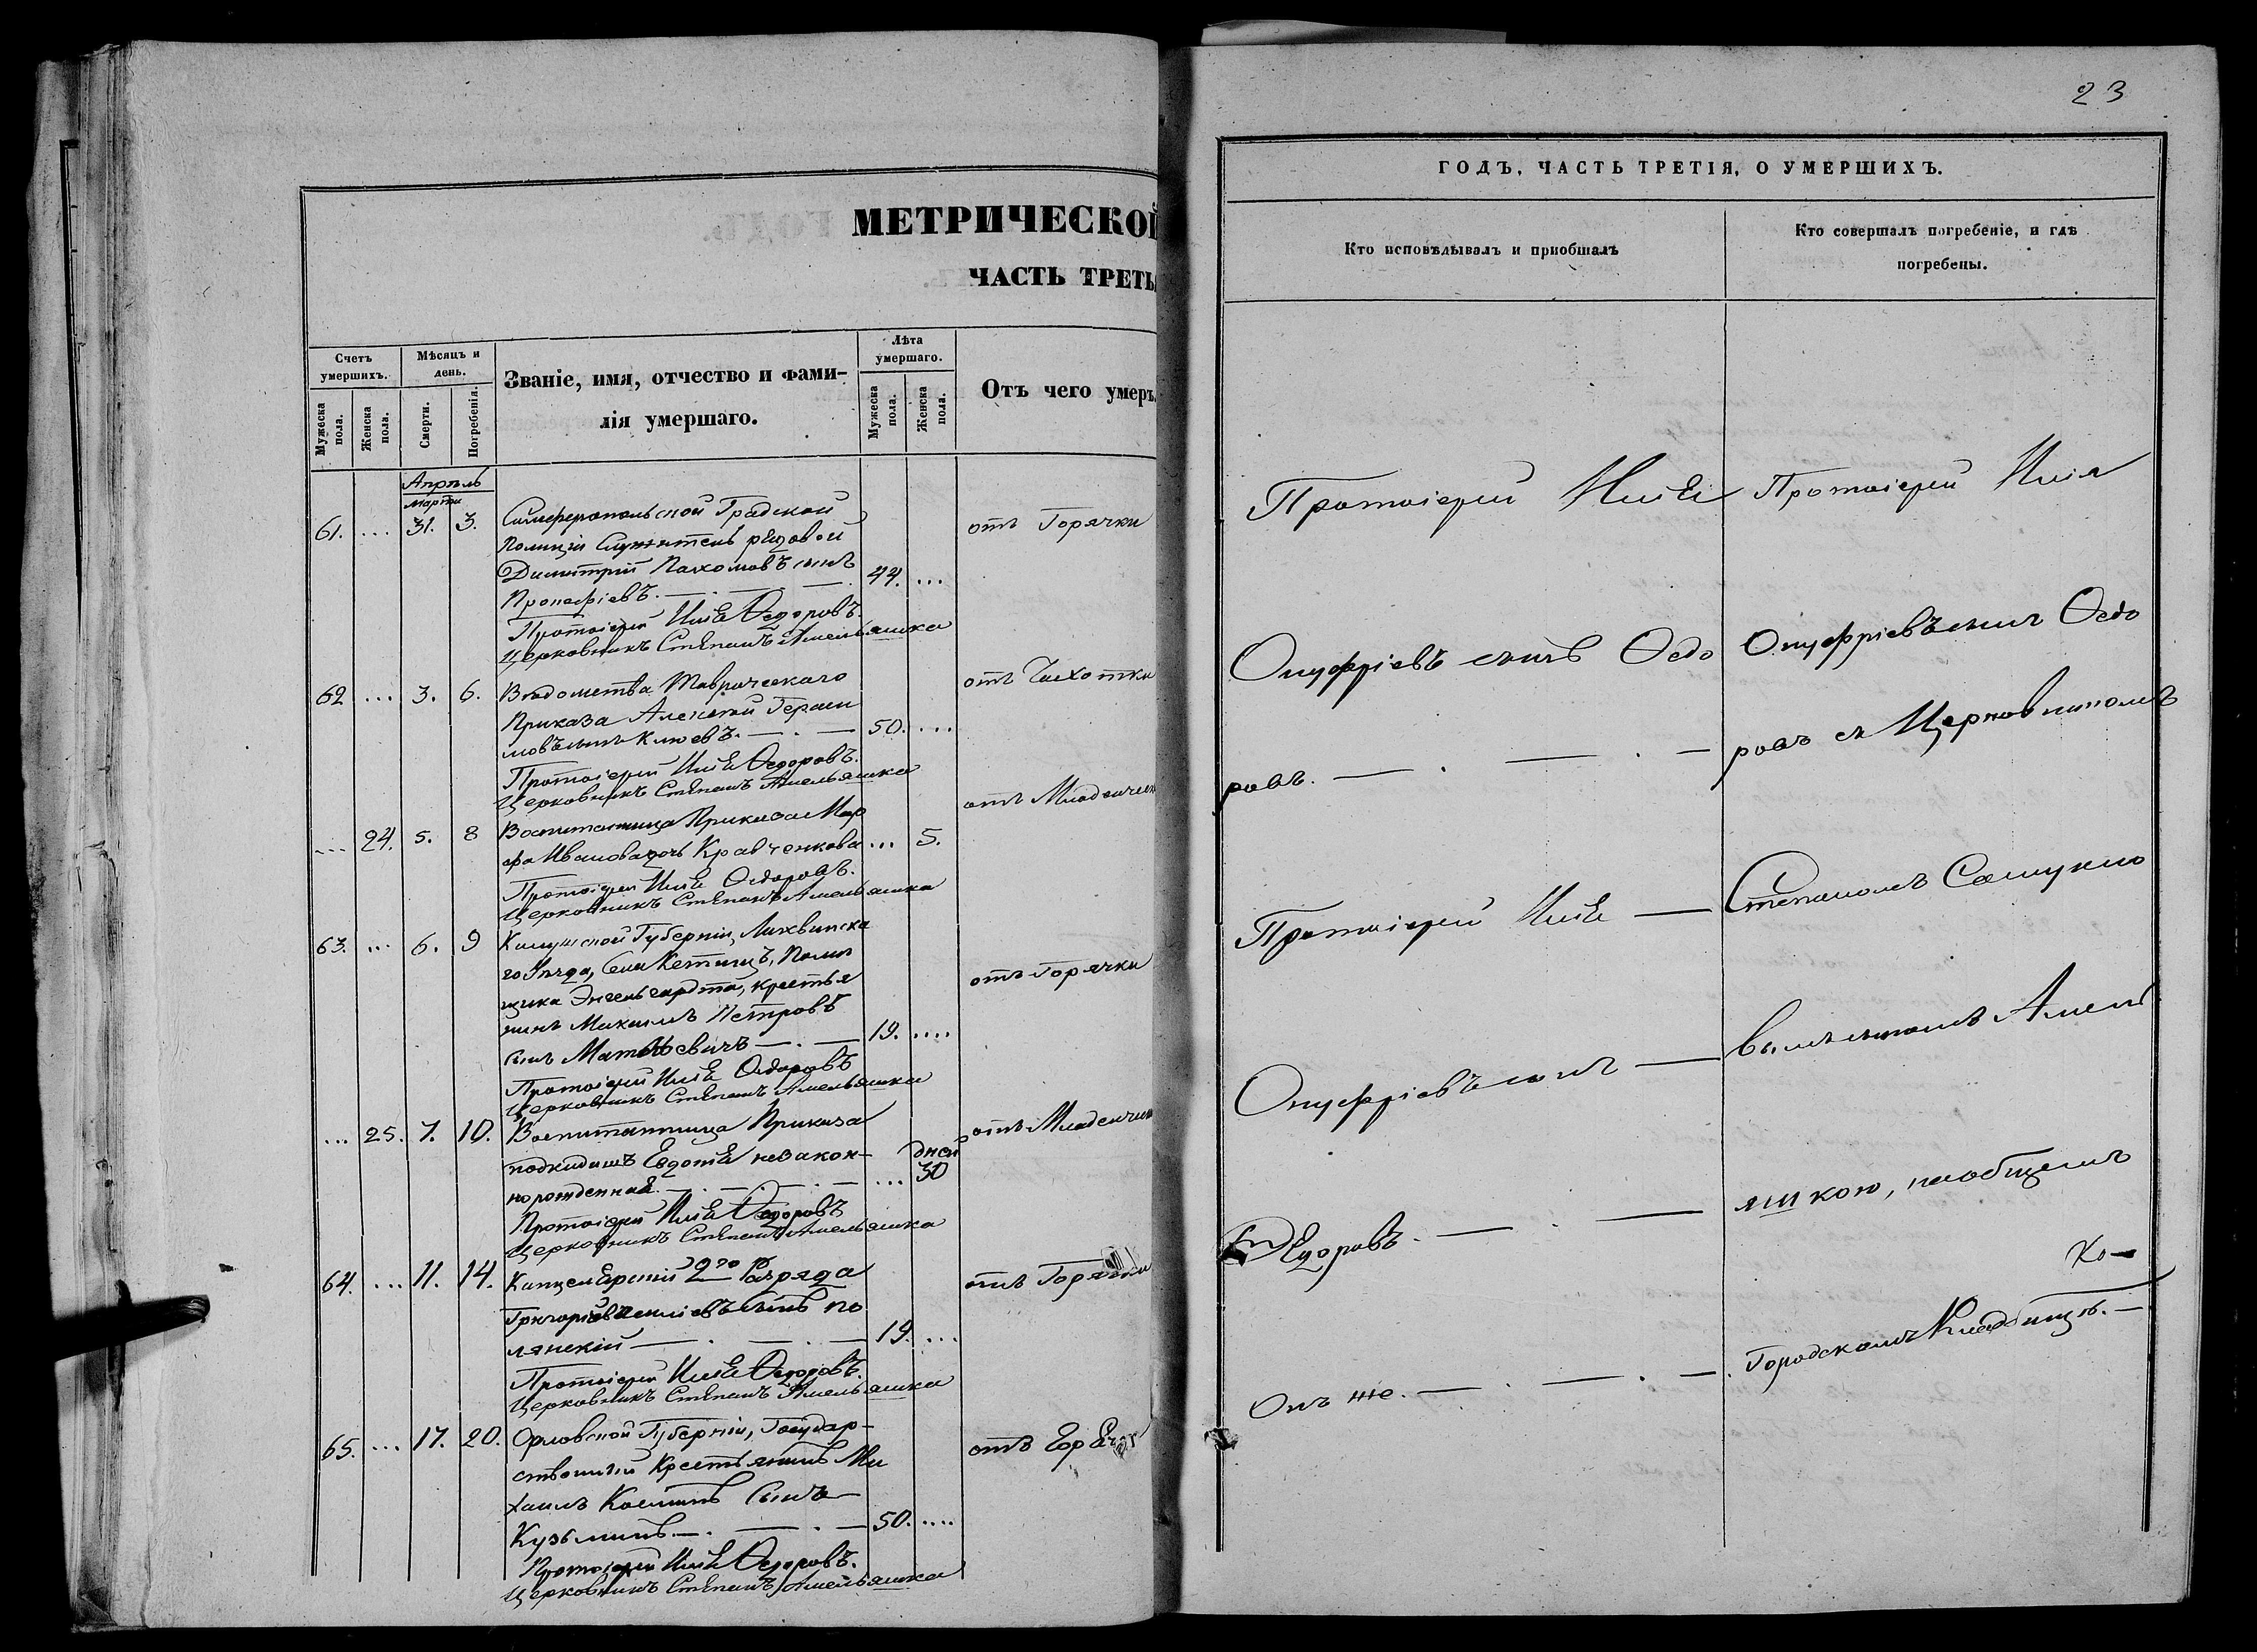 МЕТРИЧЕСКОЙ
ЧАСТЬ ТРЕТЬ
Счетъ умершихъ.
Мужеска пола.
Женска пола.
Мѣсяцъ и день.
Смерти.
Погребенія.
Званіе, имя, отчество и фами-
лія умершаго.
Лѣта умершаго.
Мужеска пола.
Женска пола.
Отъ чего умеръ.
Апрѣль
марта
61. ... 31. 3. Симферопольской Градской
Полиціи Служитель рядовой
Димитрій Пахомовъ сынъ
44. ...
отъ Горячки
Протоіерей Илія Ѳедоровъ.
Церковникъ Степанъ Амельяшка
62 ... 3. 6. Вѣдомства Таврическаго
Приказа Алексѣй Гераси
мовъ сынъ Клюевъ. — . — 50. ...
отъ Чахотки
Протоіерей Илія Ѳедоровъ.
Церковникъ Степанъ Амельяшка
... 24. 5. 8 Воспитанница Приказа Мар
фа Иванова дочь Кравченкова ... 5.
отъ Младенческ
Протоіерей Илія Ѳедоровъ.
Церковникъ Степанъ Амельяшка
63. ... 6. 9 Калужской Губерніи, Лихвинска
го Уѣзда, Села Кетицъ, Помѣ
щика Энгельгардта, крестья
нинъ Михаилъ Петровъ
сынъ Матвѣевичъ — . — 19. ....
отъ Горячки
Протоіерей Илія Ѳедоровъ
Церковникъ Степанъ Амельяшка
... 25. 7. 10. Воспитанница Приказа
подкидышъ Евдокія незакон-
норожденная. — . — . — ... дней 30
отъ Младенчик
Протоіерей Илія Ѳедоровъ
Церковникъ Степанъ Амельяшка
64. ... 11. 14. Канцелярскій 2го Разряда
Григорій Василіевъ сынъ По
лянскій — . — . — 19. ...
отъ Горячки
Протоіерей Илія Ѳедоровъ.
Церковникъ Степанъ Амельяшка
65. ... 17. 20. Орловской Губерніи, Государ-
ственный Крестьянинъ Ми
хаилъ Косминъ Сынъ
Кузьминъ. — . — . — 50. ....
отъ Горячк
Протоіерей Илія Ѳедоровъ.
Церковникъ Степанъ Амельяшка
23
ГОДЪ, ЧАСТЬ ТРЕТІЯ, О УМЕРШИХЪ.
Кто исповѣдывалъ и приобщалъ
Кто совершалъ погребеніе, и гдѣ
погребены.
Протоіерей Илія
Онуфріевъ сынъ Ѳедо
ровъ. — . — . —
Протоіерей Илія —
Онуфріевъ сынъ —
Ѳедоровъ. — . —
Онъ же. — . — . —
Протоіерей Илія
Онуфріевъ сынъ Ѳедо
ровъ съ Церковникомъ
Степаномъ
Амель
яшкою, на общемъ
Городскомъ Кладбищѣ. —